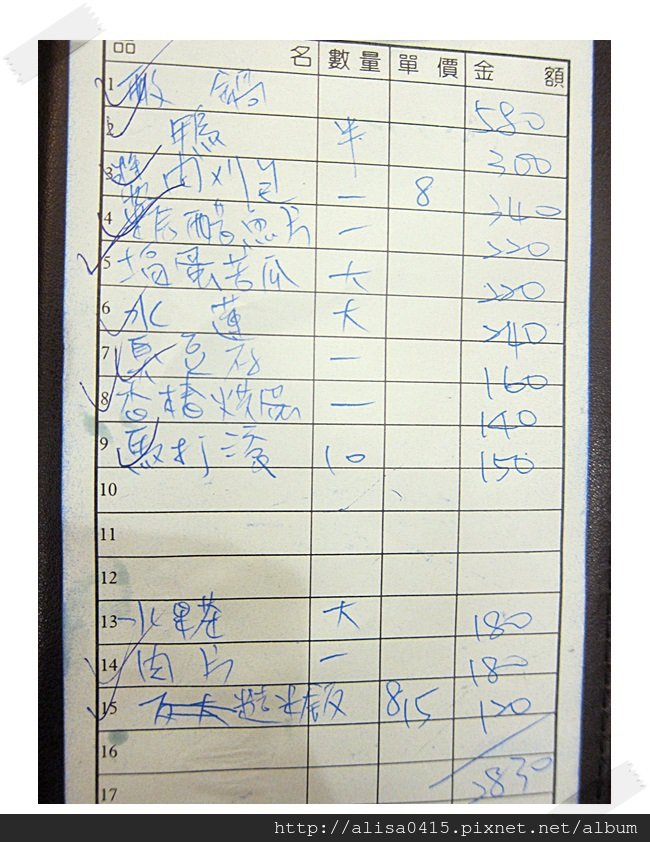 品 名 數量 單價 金額
1 鍋 580
2 鴨 半 300
3 肉刈包 一 8 340
4 醋魚片 一 220
5 塩蛋苦瓜 大 220
6 水蓮 大 240
7 豆腐 一 160
8 香椿烘蛋 一 140
9 驢打滾 10 150
10
11
12
13 水果茶 大 180
14 肉片 一 180
15 糙米飯 8 15 120
16
17 2830
http://alisa0415.pixnet.net/album